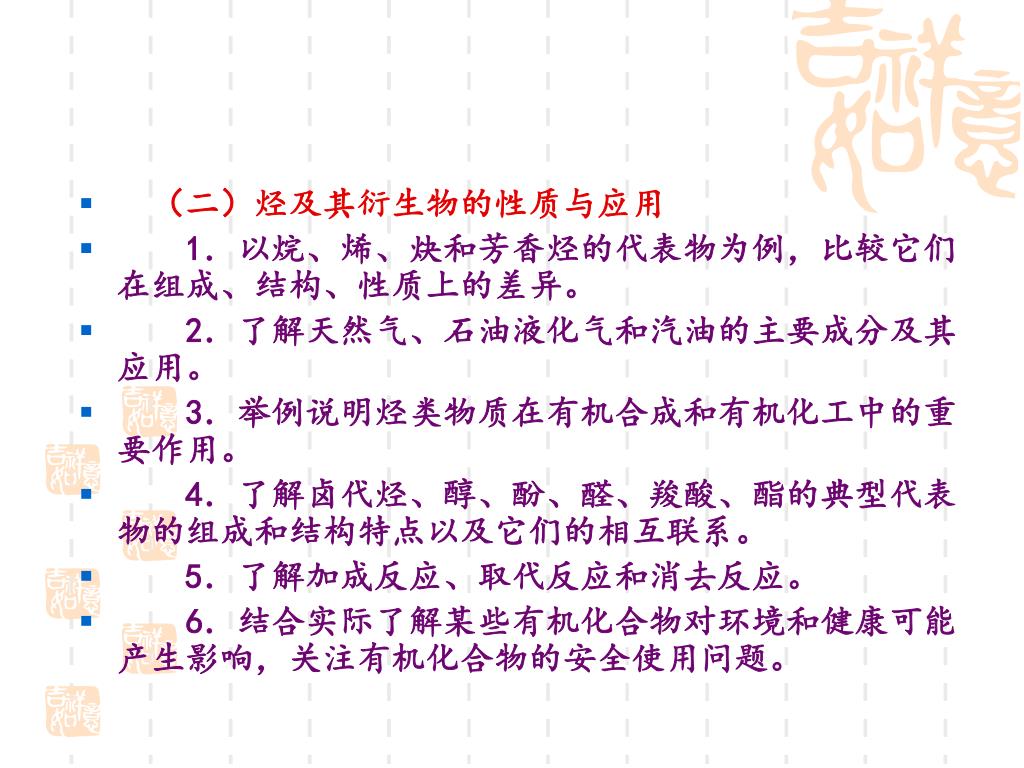 吉祥
如意
（二）烃及其衍生物的性质与应用
1．以烷、烯、炔和芳香烃的代表物为例，比较它们
在组成、结构、性质上的差异。
2．了解天然气、石油液化气和汽油的主要成分及其
应用。
3．举例说明烃类物质在有机合成和有机化工中的重
要作用。
4．了解卤代烃、醇、酚、醛、羧酸、酯的典型代表
物的组成和结构特点以及它们的相互联系。
5．了解加成反应、取代反应和消去反应。
6．结合实际了解某些有机化合物对环境和健康可能
产生影响，关注有机化合物的安全使用问题。
吉祥
如意
吉祥
如意
吉祥
如意
吉祥
如意
吉祥
如意
吉祥
如意